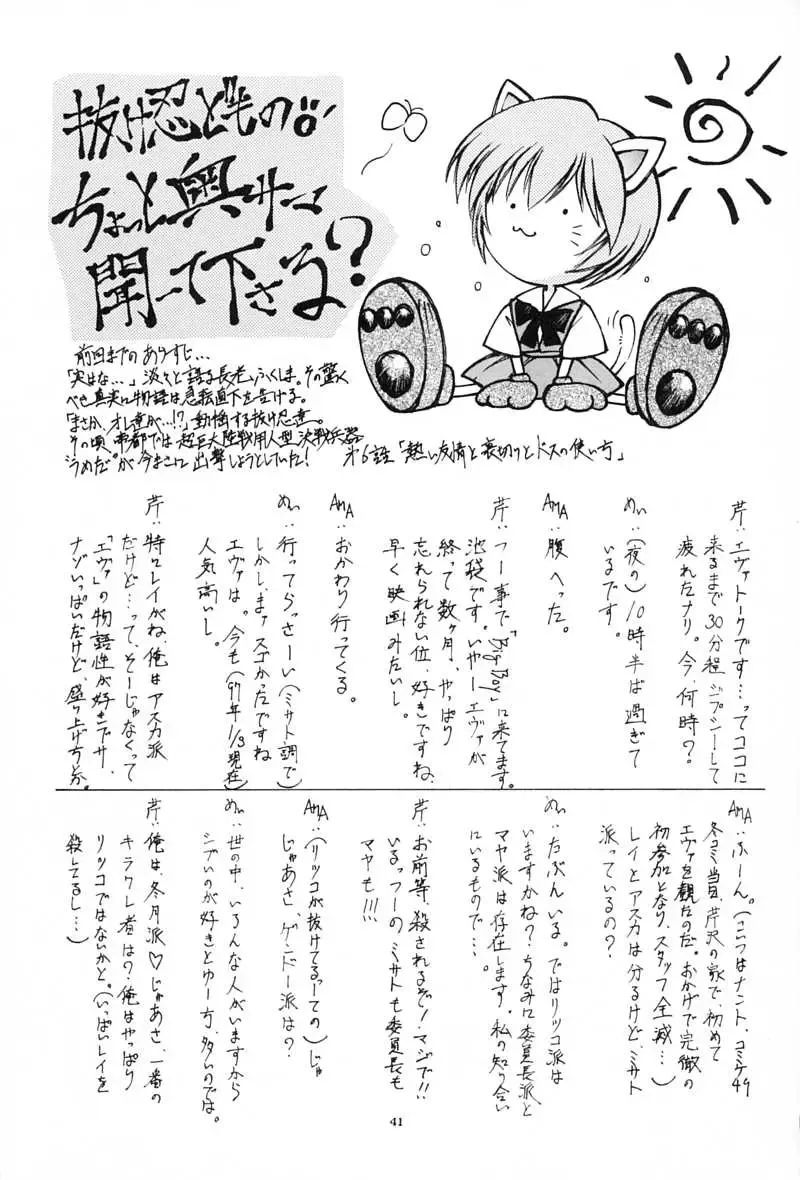 抜け忍どもの
ちょっと奥サマ
聞いて下さる?
前回までのあらすじ…
「実はな…」淡々と語る長老、ふくしま。その驚く
べき真実に物語は急転直下を告げる。
「まさか、オレ達が…!?」動揺する抜け忍達。
その頃、帝都では超巨大陸戦用人型決戦兵器
“うめだ”が今まさに出撃しようとしていた!
第6話「熱い友情と裏切りとドスの使い方」
芹:エヴァトークです…ってココに
来るまで30分程ジプシーして
疲れたナリ。今、何時?
めぃ:(夜の)10時半ば過ぎて
いるです。
AMA:腹へった。
芹:つー事で「Big Boy」に来てます。
池袋です。いやーエヴァが
終って数ヶ月、やっぱり
忘れられない位、好きですね、
早く映画みたいし。
AMA:おかわり行ってくる。
めぃ:行ってらっさーい(ミサト調で)
しかし、まァスゴかったですね
エヴァは。今も(97年1/3現在)
人気高いし。
芹:特にレイがね、俺はアスカ派
だけど…って、そーじゃなくって
「エヴァ」の物語性が好きでサ、
ナゾいっぱいだけど、盛り上げ方とか。
AMA:ふーん。(こいつはナント、コミケ49
冬コミ当日、芹沢の家で、初めて
エヴァを観たのだ。おかげで完徹の
初参加となり、スタッフ全滅…)
レイとアスカは分るけど、ミサト
派っているの?
めぃ:たぶん、いる。ではリツコ派は
いますかね?ちなみに委員長派と
マヤ派は存在します。私の知り合い
にいるもので…。
芹:お前等、殺されるぞ!マジで!!
いるっつーの ミサトも委員長も
マヤも!!!
AMA:(リツコが抜けてるっての)じゃ
じゃあさ、ゲンドー派は?
めぃ:世の中、いろんな人がいますから
シブいのが好きとゆー方、多いのでは。
芹:俺は、冬月派♡じゃあさ、一番の
キラクレ者は?俺はやっぱり
リツコではないかと。(いっぱいレイを
殺してるし…)
41